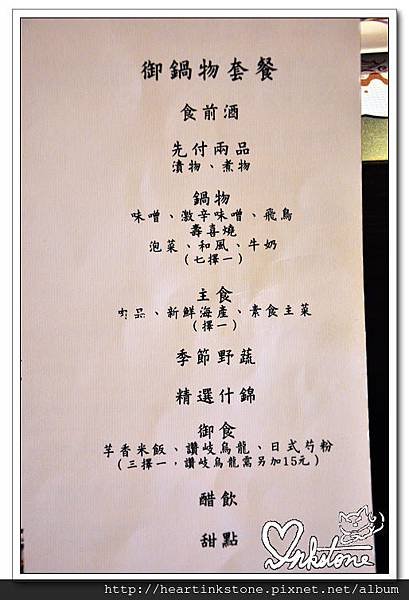 御鍋物套餐
食前酒
先付兩品
漬物、煮物
鍋物
味噌、激辛味噌、飛鳥
壽喜燒
泡菜、和風、牛奶
(七擇一)
主食
品、新鮮海產、素食主菜
(擇一)
季節野蔬
精選什錦
御食
芋香米飯、讚岐烏龍、日式芍粉
(三擇一，讚岐烏龍需另加15元)
醋飲
甜點
Inkstone
http://heartinkstone.pixnet.net/album